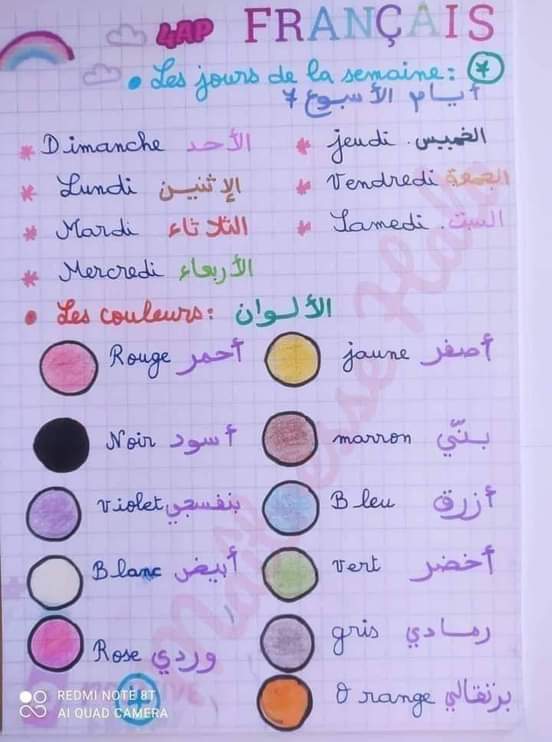 4AP FRANÇAIS
• Les jours de la semaine: 7
أيام الأسبوع 7
* Dimanche الأحد
* Lundi الإثنين
* Mardi الثلاثاء
* Mercredi الأربعاء
* jeudi. الخميس
* Vendredi الجمعة
* Samedi. السبت
• Les couleurs: الألوان
Rouge أحمر
jaune أصفر
Noir أسود
marron بنّي
violet بنفسجي
Bleu أزرق
Blanc أبيض
vert أخضر
Rose وردي
gris رمادي
Orange برتقالي
REDMI NOTE 8T
AI QUAD CAMERA